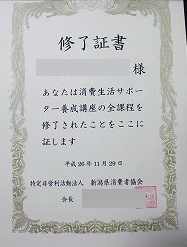 修了証書
様
あなたは消費生活サポー
ター養成講座の全課程を
修了されたことをここに
証します
平成26年11月29日
特定非営利活動法人 新潟県消費者協会
会長